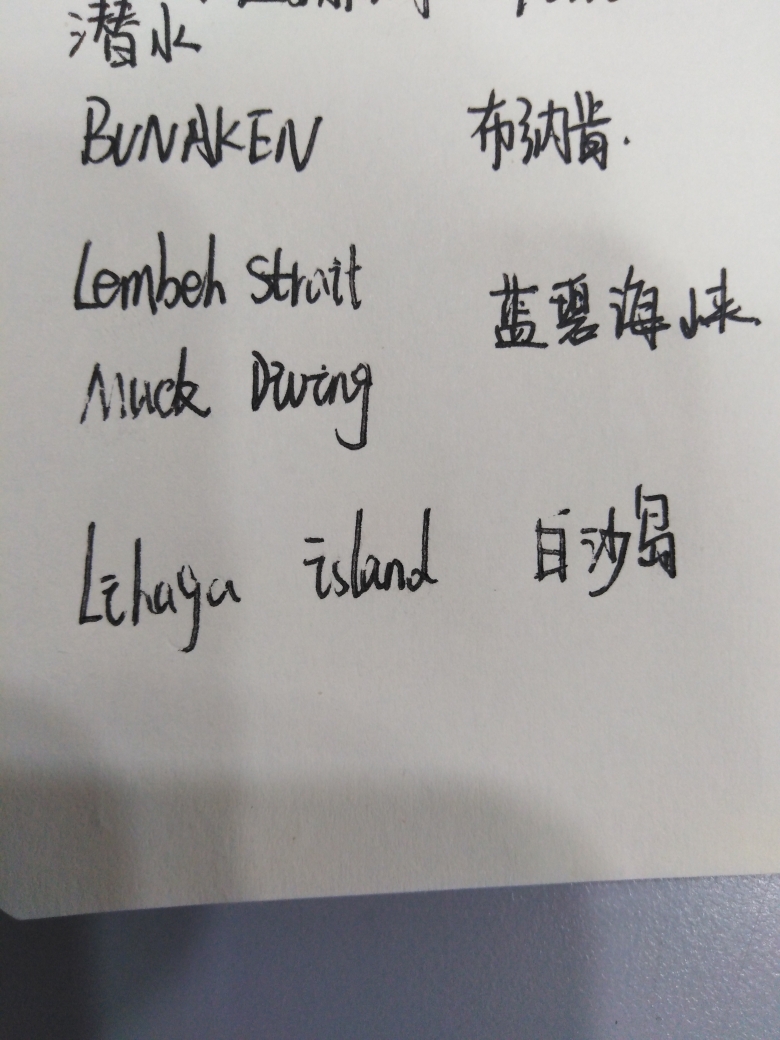 潜水
BUNAKEN 布纳肯.
Lembeh Strait 蓝碧海峡
Muck Diving
Lihaga island 白沙岛